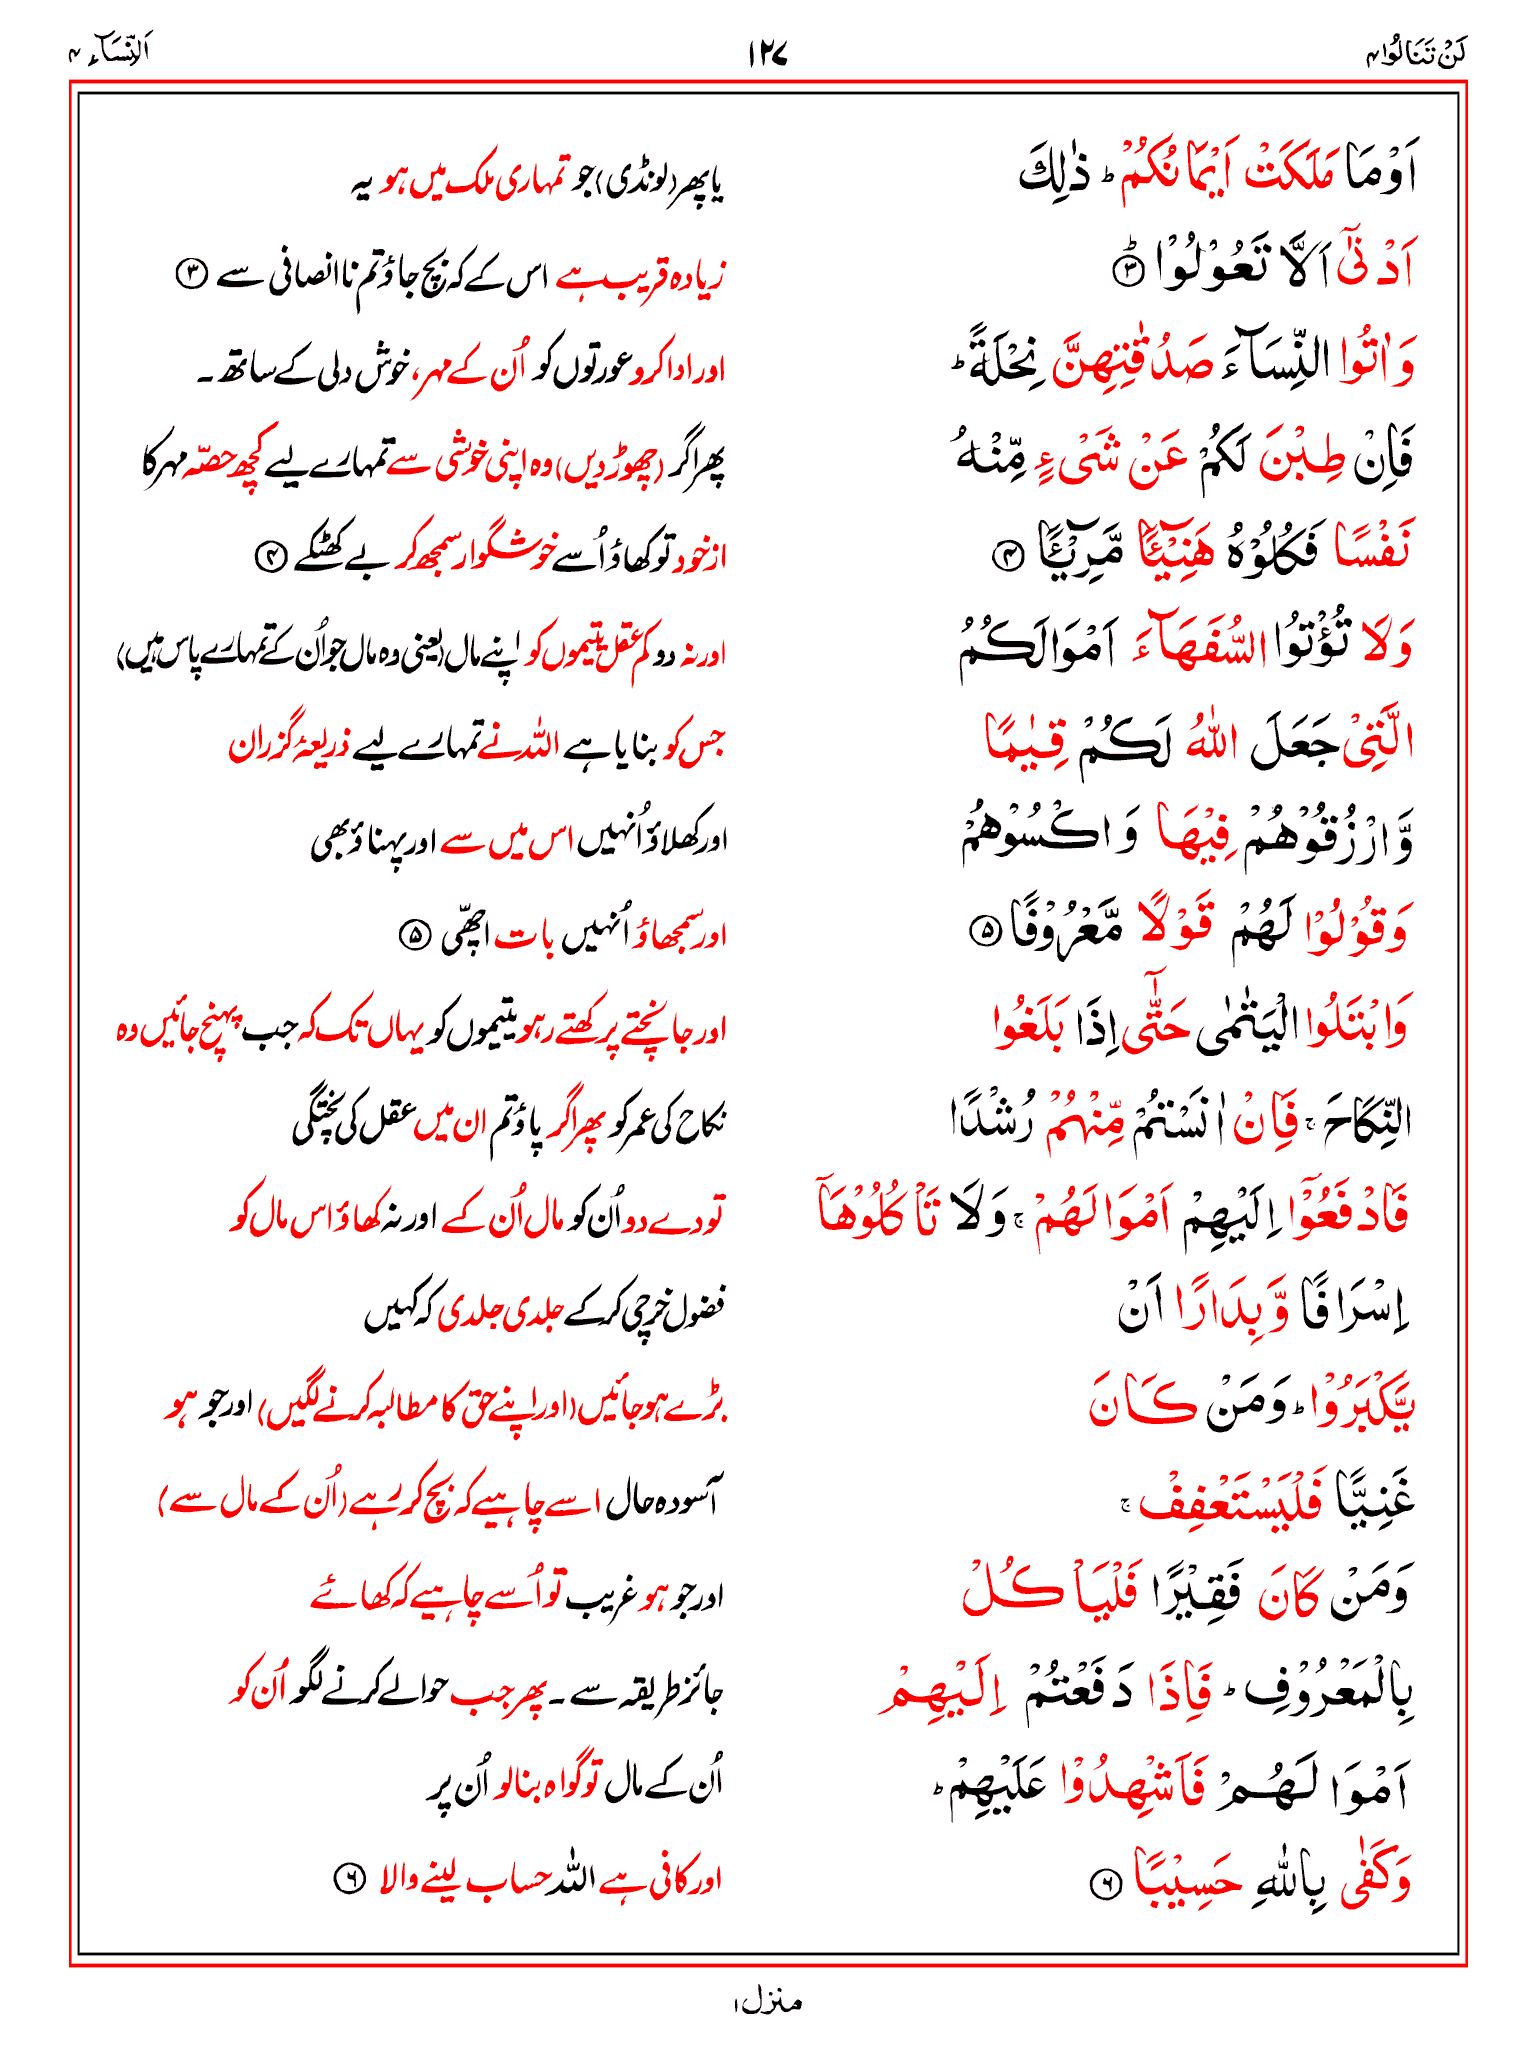 لَنْ تَنَالُوا ۴ ۱۲۷ اَلنِّسَآء ۴
اَوْ مَا مَلَكَتْ اَيْمَانُكُمْ ؕ ذٰلِكَ
یا پھر (لونڈی) جو تمہاری ملک میں ہو یہ
اَدْنٰٓى اَلَّا تَعُوْلُوْا ؕ ۳
زیادہ قریب ہے اس کے کہ بچ جاؤ تم نا انصافی سے ۳
وَ اٰتُوا النِّسَآءَ صَدُقٰتِهِنَّ نِحْلَةً ؕ
اور ادا کرو عورتوں کو اُن کے مہر، خوش دلی کے ساتھ۔
فَاِنْ طِبْنَ لَكُمْ عَنْ شَیْءٍ مِّنْهُ
پھر اگر (چھوڑ دیں) وہ اپنی خوشی سے تمہارے لیے کچھ حصّہ مہر کا
نَفْسًا فَكُلُوْهُ هَنِیْٓـًٔا مَّرِیْٓـًٔا ۴
از خود تو کھاؤ اُسے خوشگوار سمجھ کر بے کھٹکے ۴
وَلَا تُؤْتُوا السُّفَهَآءَ اَمْوَالَكُمُ
اور نہ دو کم عقل یتیموں کو اپنے مال (یعنی وہ مال جو اُن کے تمہارے پاس ہیں)
الَّتِیْ جَعَلَ اللّٰهُ لَكُمْ قِیٰمًا
جس کو بنایا ہے اللہ نے تمہارے لیے ذریعۂ گزران
وَّ ارْزُقُوْهُمْ فِیْهَا وَ اكْسُوْهُمْ
اور کھلاؤ اُنہیں اس میں سے اور پہناؤ بھی
وَ قُوْلُوْا لَهُمْ قَوْلًا مَّعْرُوْفًا ۵
اور سمجھاؤ اُنہیں بات اچھّی ۵
وَ ابْتَلُوا الْیَتٰمٰى حَتّٰۤى اِذَا بَلَغُوا
اور جانچتے پرکھتے رہو یتیموں کو یہاں تک کہ جب پہنچ جائیں وہ
النِّكَاحَ ۚ فَاِنْ اٰنَسْتُمْ مِّنْهُمْ رُشْدًا
نکاح کی عمر کو پھر اگر پاؤ تم ان میں عقل کی پختگی
فَادْفَعُوْۤا اِلَیْهِمْ اَمْوَالَهُمْ ۚ وَلَا تَاْكُلُوْهَاۤ
تو دے دو اُن کو مال اُن کے اور نہ کھاؤ اس مال کو
اِسْرَافًا وَّ بِدَارًا اَنْ
فضول خرچی کر کے جلدی جلدی کہ کہیں
یَّكْبَرُوْا ؕ وَمَنْ كَانَ
بڑے ہو جائیں (اور اپنے حق کا مطالبہ کرنے لگیں) اور جو ہو
غَنِیًّا فَلْیَسْتَعْفِفْ ۚ
آسودہ حال اسے چاہیے کہ بچ کر رہے (اُن کے مال سے)
وَمَنْ كَانَ فَقِیْرًا فَلْیَاْكُلْ
اور جو ہو غریب تو اُسے چاہیے کہ کھائے
بِالْمَعْرُوْفِ ؕ فَاِذَا دَفَعْتُمْ اِلَیْهِمْ
جائز طریقہ سے۔ پھر جب حوالے کرنے لگو اُن کو
اَمْوَالَهُمْ فَاَشْهِدُوْا عَلَیْهِمْ ؕ
اُن کے مال تو گواہ بنا لو اُن پر
وَكَفٰى بِاللّٰهِ حَسِیْبًا ۶
اور کافی ہے اللہ حساب لینے والا ۶
منزل ۱